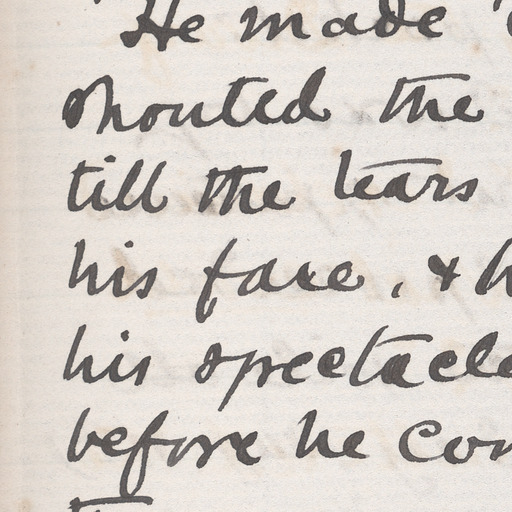 He made
shouted the
till the tears
his face, & h
his spectacle
before he con